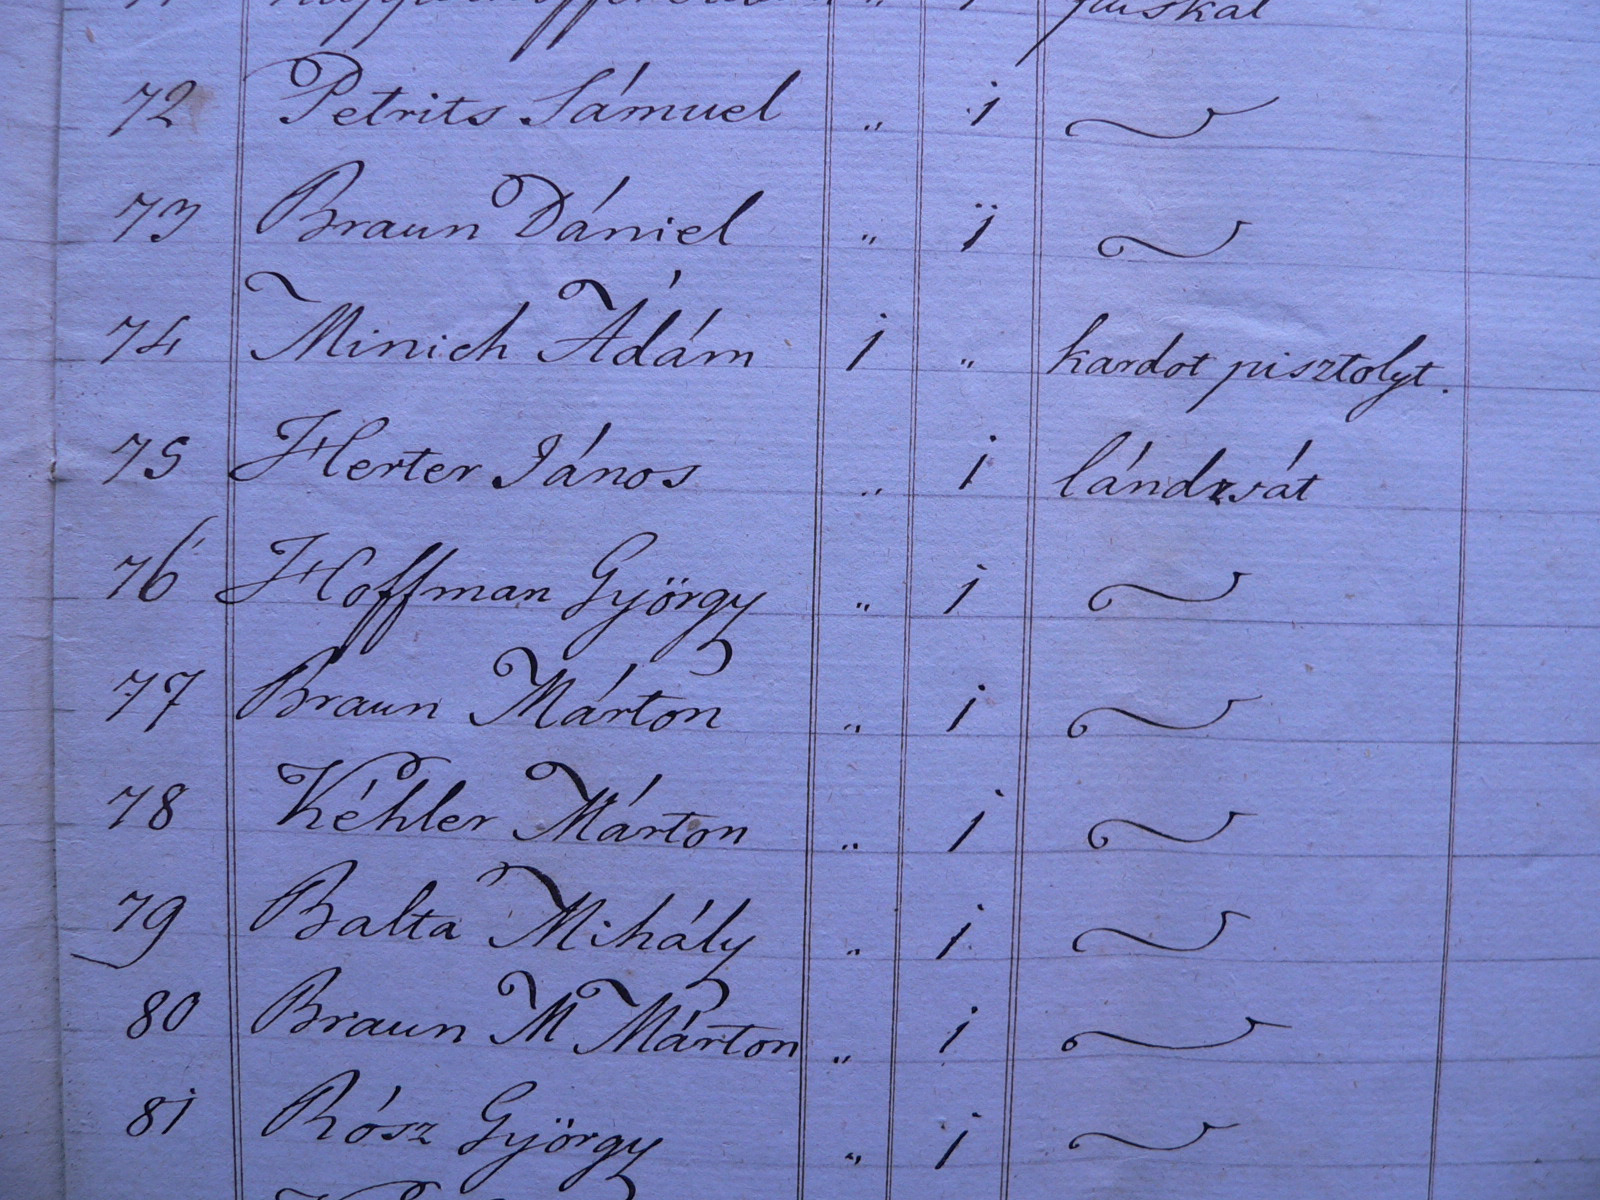 puskát
72 Petrits Sámuel „ 1 ~
73 Braun Dániel „ 1 ~
74 Minich Ádám 1 „ kardot pisztolyt.
75 Herter János „ 1 lándzsát
76 Hoffman György „ 1 ~
77 Braun Márton „ 1 ~
78 Kéhler Márton „ 1 ~
79 Balta Mihály „ 1 ~
80 Braun M Márton „ 1 ~
81 Rósz György „ 1 ~